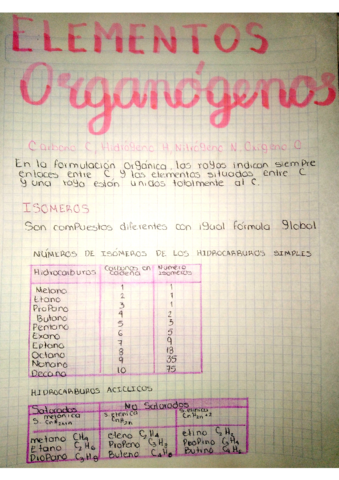 ELEMENTOS
Organógenos
Carbono C, Hidrógeno H, Nitrógeno N, Oxígeno O
En la formulación orgánica, las rayas indican siempre
enlaces entre C y los elementos situados entre C
y una raya están unidos totalmente al C.
ISÓMEROS
Son compuestos diferentes con igual fórmula global
NÚMEROS DE ISÓMEROS DE LOS HIDROCARBUROS SIMPLES
Hidrocarburos Carbonos en cadena Número isómeros
Metano 1 1
Etano 2 1
Propano 3 1
Butano 4 2
Pentano 5 3
Exano 6 5
Eptano 7 9
Octano 8 18
Nonano 9 35
Decano 10 75
HIDROCARBUROS ACICLICOS
Saturados No Saturados
S. metánica CnH2n+2 S. eténica CnH2n
metano CH4 eteno C2H4 etino C2H2
Etano C2H6 Propeno C3H6 Propino C3H4
Propano C3H8 Buteno C4H8 Butino C4H6